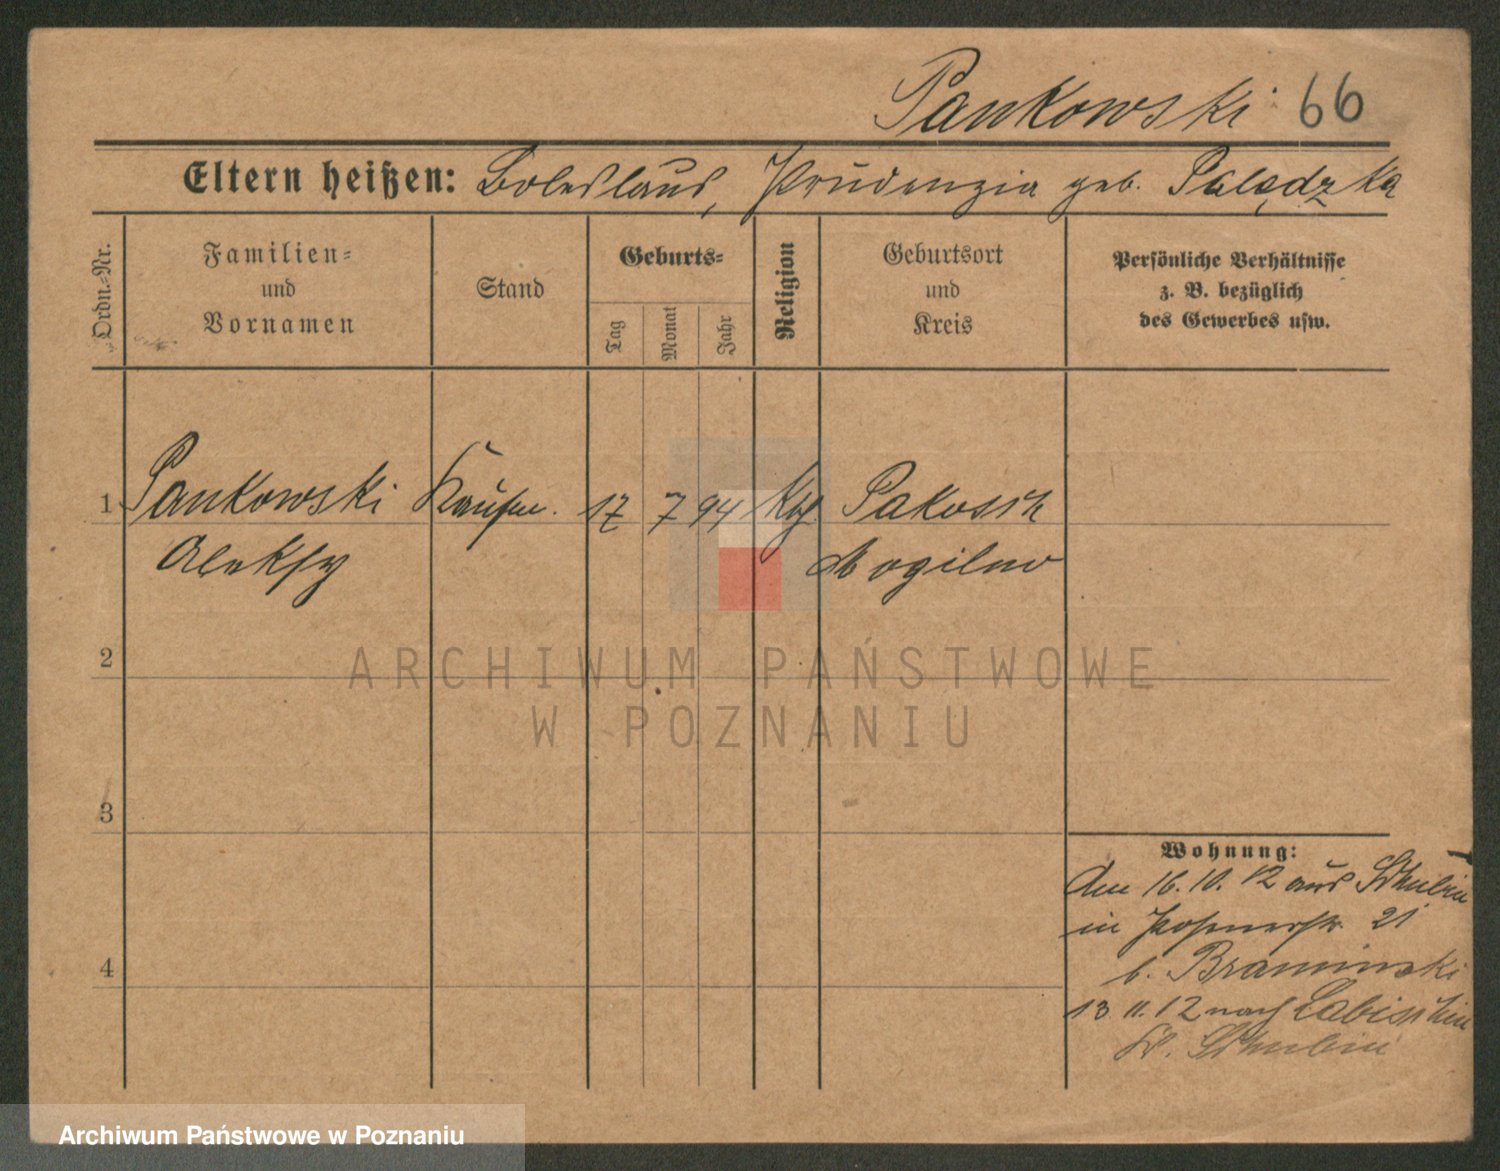 Pankowski 66
Eltern heißen: Boleslaus, Prudenzia geb. Palędzka
Ordn.-Nr.
Familien-
und
Vornamen
Stand
Geburts-
Tag
Monat
Jahr
Religion
Geburtsort
und
Kreis
Persönliche Verhältnisse
z. B. bezüglich
des Gewerbes usw.
1 Pankowski Kaufm. 17 7 94 Kth. Pakosch
Aleksy Mogilno
2
3
4
Wohnung:
Am 16.10.12 aus Schubin
in Posenerstr. 21
b. Braminski
13 11. 12 nach Labischin
Kr. Schubin
ARCHIWUM PAŃSTWOWE
W POZNANIU
Archiwum Państwowe w Poznaniu